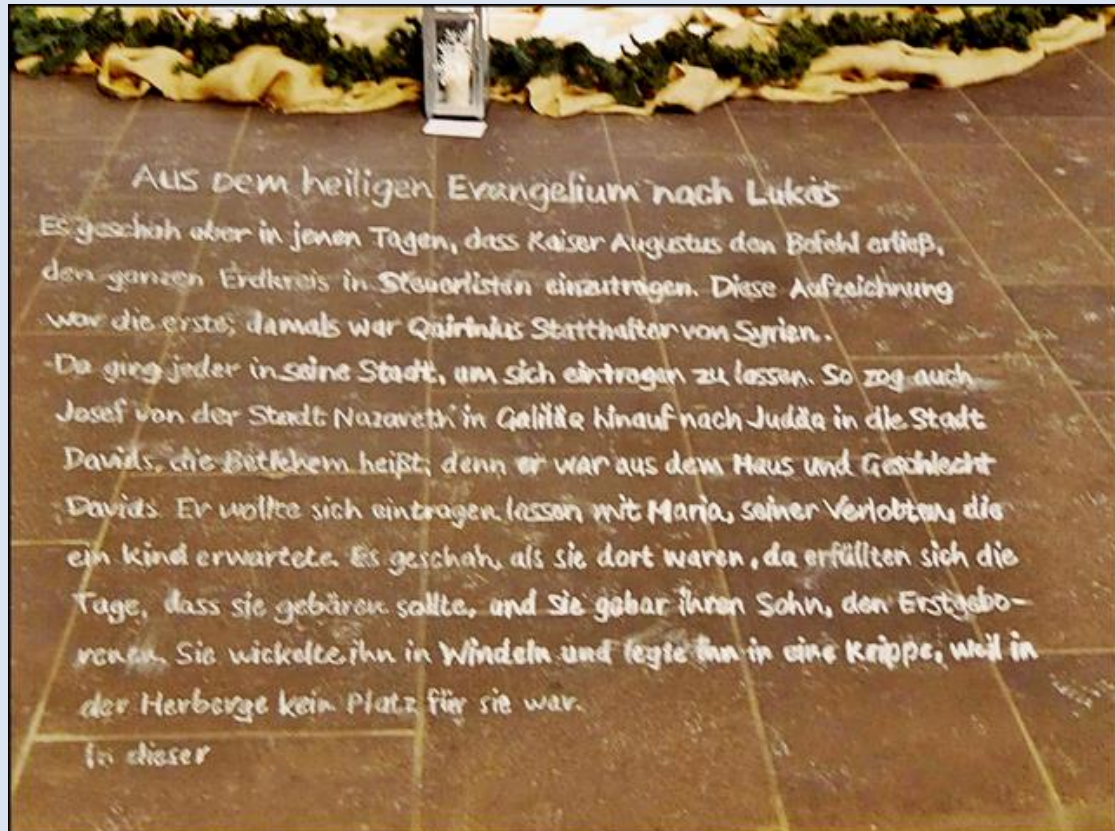 Aus dem heiligen Evangelium nach Lukas
Es geschah aber in jenen Tagen, dass Kaiser Augustus den Befehl erließ,
den ganzen Erdkreis in Steuerlisten einzutragen. Diese Aufzeichnung
war die erste; damals war Quirinius Statthalter von Syrien.
Da ging jeder in seine Stadt, um sich eintragen zu lassen. So zog auch
Josef von der Stadt Nazareth in Galiläa hinauf nach Judäa in die Stadt
Davids, die Betlehem heißt; denn er war aus dem Haus und Geschlecht
Davids. Er wollte sich eintragen lassen mit Maria, seiner Verlobten, die
ein Kind erwartete. Es geschah, als sie dort waren, da erfüllten sich die
Tage, dass sie gebären sollte, und sie gebar ihren Sohn, den Erstgebo-
renen. Sie wickelte ihn in Windeln und legte ihn in eine Krippe, weil in
der Herberge kein Platz für sie war.
In dieser